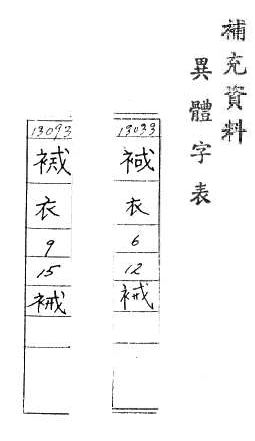 補充資料
異體字表
13033
衣
6
12
裓
13093
衣
9
15
裓